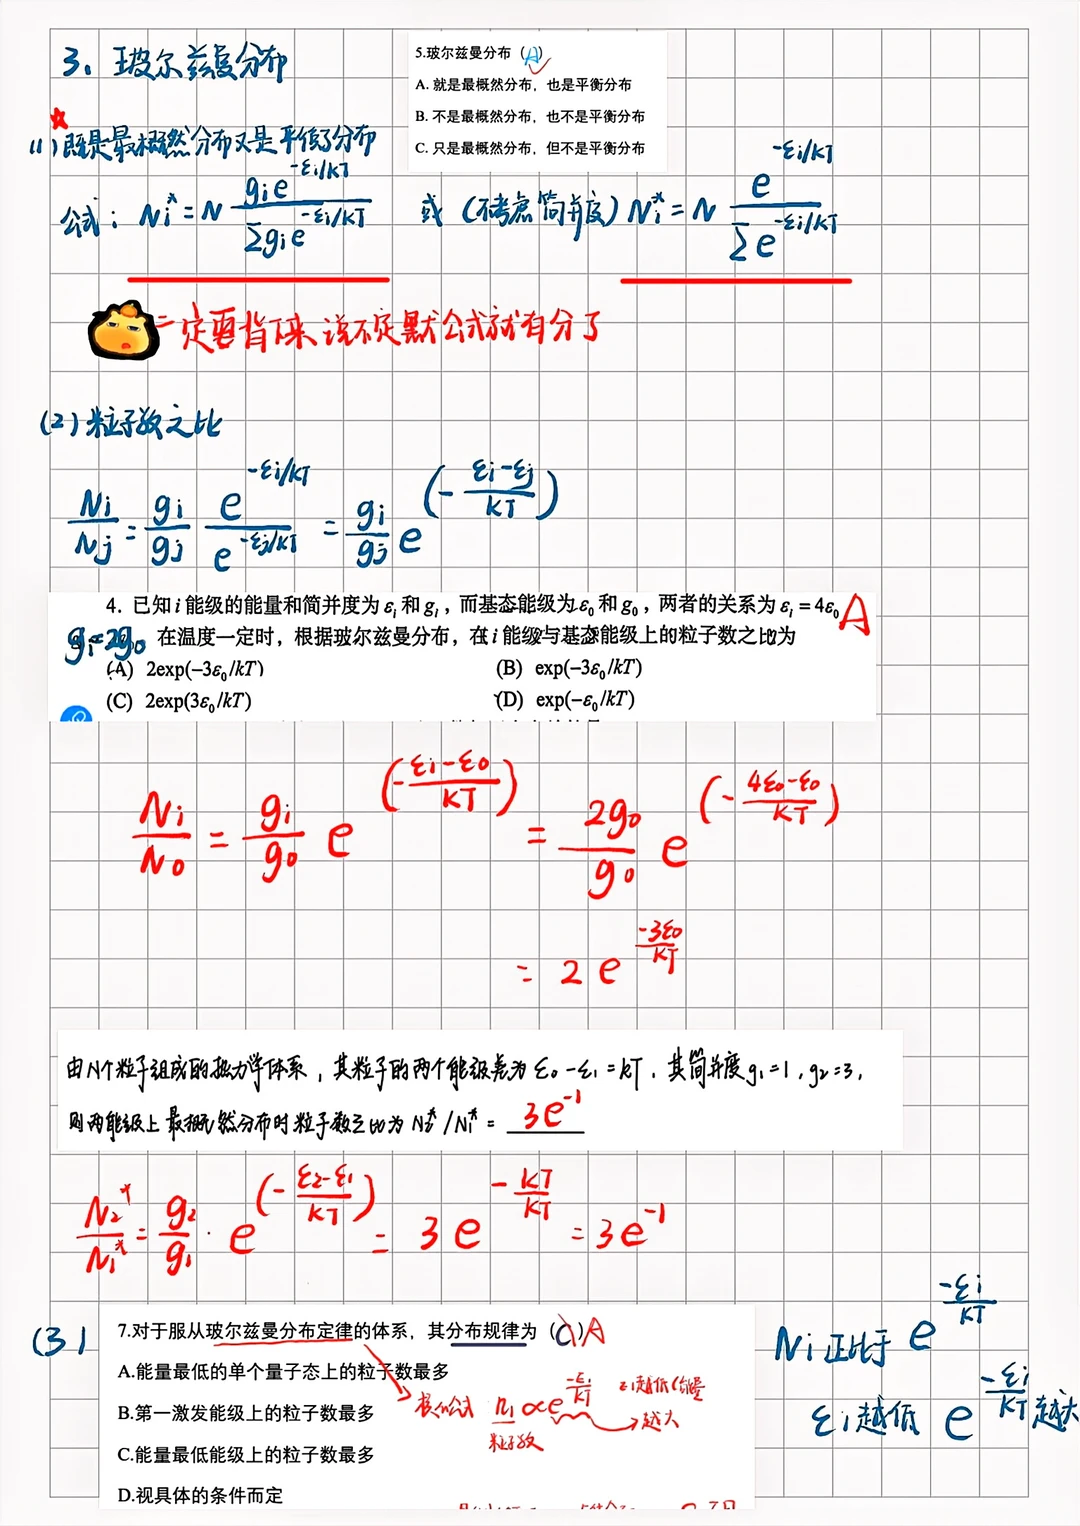 3、玻尔兹曼分布
5.玻尔兹曼分布（A）
A. 就是最概然分布，也是平衡分布
B. 不是最概然分布，也不是平衡分布
C. 只是最概然分布，但不是平衡分布
(1)既是最概然分布又是平衡分布
公式：Ni* = N gie^(-εi/kT) / Σgie^(-εi/kT) 或（不考虑简并度）Ni* = N e^(-εi/kT) / Σe^(-εi/kT)
一定要背下来，说不定默公式就有分了
(2)粒子数之比
Ni/Nj = gi/gj e^(-εi/kT) / e^(-εj/kT) = gi/gj e^(-(εi-εj)/kT)
4. 已知 i 能级的能量和简并度为 εi 和 gi，而基态能级为 ε0 和 g0，两者的关系为 εi = 4ε0 A
gi=2g0 在温度一定时，根据玻尔兹曼分布，在 i 能级与基态能级上的粒子数之比为
(A) 2exp(−3ε0/kT) (B) exp(−3ε0/kT)
(C) 2exp(3ε0/kT) (D) exp(−ε0/kT)
Ni/N0 = gi/g0 e^(-(εi-ε0)/kT) = 2g0/g0 e^(-(4ε0-ε0)/kT)
= 2e^(-3ε0/kT)
由N个粒子组成的热力学体系，其粒子的两个能级差为 ε0-ε1=kT，其简并度g1=1，g2=3，
则两能级上最概然分布时粒子数之比为 N2*/N1* = 3e^-1
N2*/N1* = g2/g1 · e^(-(ε2-ε1)/kT) = 3e^(-kT/kT) = 3e^-1
(3)
7.对于服从玻尔兹曼分布定律的体系，其分布规律为（C）A
A.能量最低的单个量子态上的粒子数最多
B.第一激发能级上的粒子数最多
C.能量最低能级上的粒子数最多
D.视具体的条件而定
公式 ni∝e^(-εi/kT)
粒子数
越大
Ni正比于 e^(-εi/kT)
εi越低 e^(-εi/kT)越大